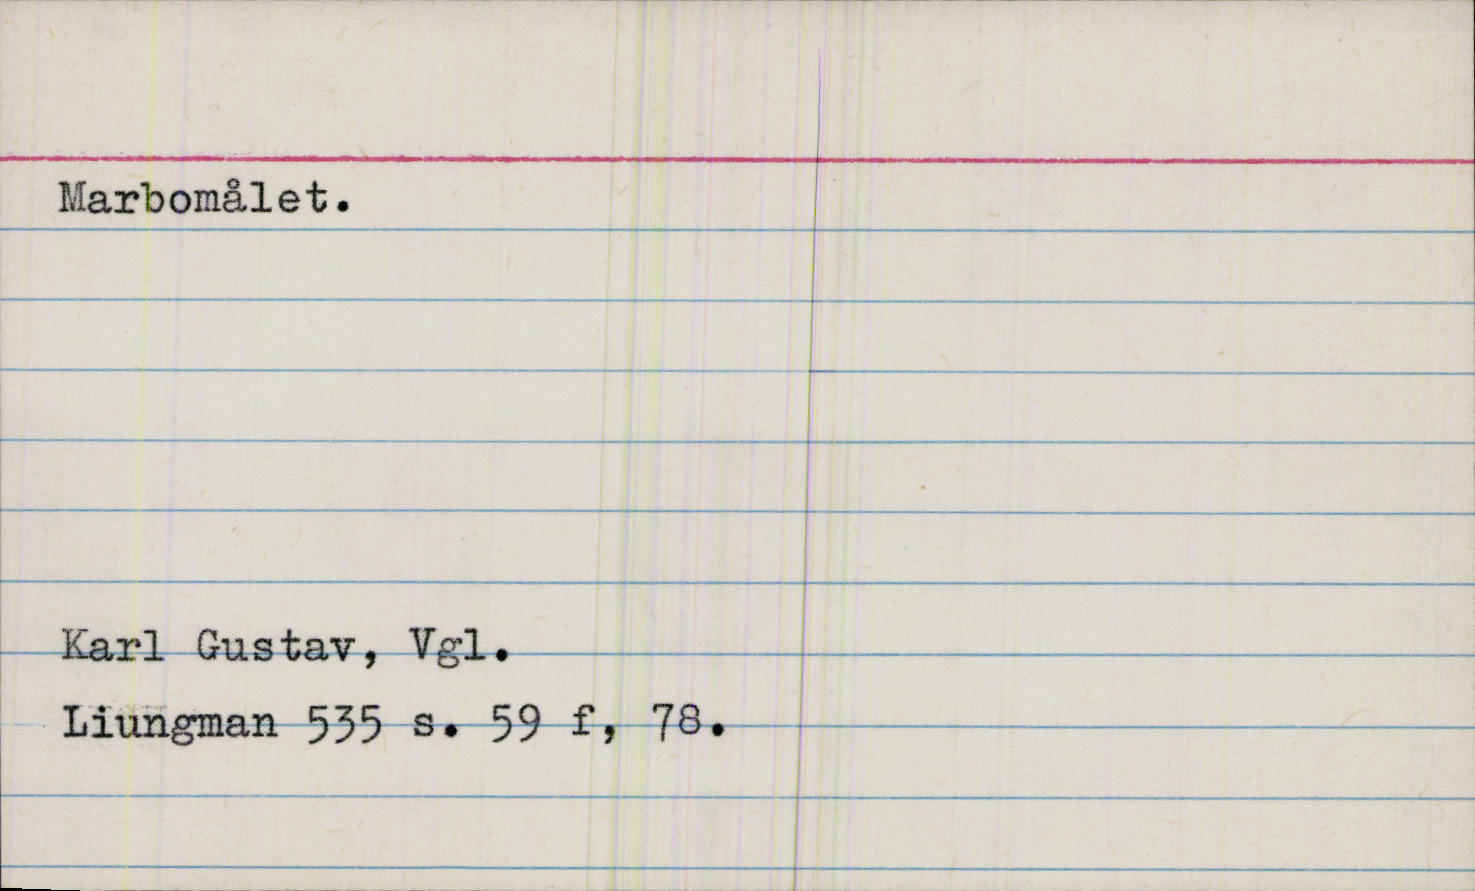 Marbomålet.
Karl Gustav, Vgl.
Liungman 535 s. 59 f, 78.